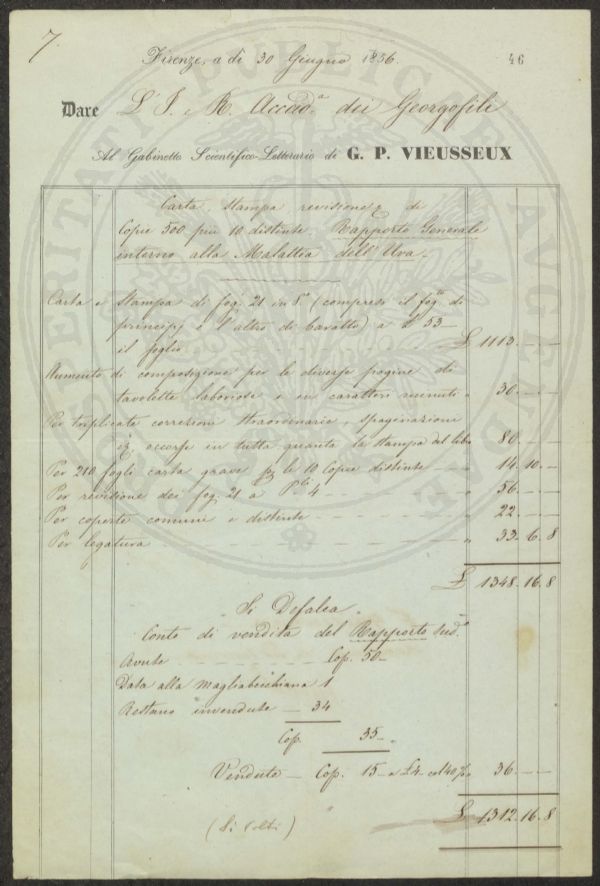 7.
Firenze, a dì 30 Giugno 1856.
46
Dare L'I. e R. Accad.a dei Georgofili
Al Gabinetto Scientifico-Letterario di G. P. VIEUSSEUX
Carta, stampa revisione di
Copie 500 più 10 distinte. Rapporto Generale
intorno alla Malattia dell'Uva.
Carta e stampa di fog. 21 in 8° (compreso il fog.to di
principj e l'altro di baratto) a £ 53
il foglio £ 1113. - -
Aumento di composizione per le diverse pagine di
tavolette laboriose e in caratteri minuti " 30. - -
Per triplicate correzioni straordinarie, spaginazioni
occorse in tutta quanta la stampa del libro 80. - -
Per 210 fogli carta grave p. le 10 Copie distinte " 14. 10. -
Per revisione dei fog. 21 a P.li 4 " 56. - -
Per coperte comuni e distinte " 22. - -
Per legatura " 33. 6. 8
£ 1348. 16. 8
Si Defalca
Conto di vendita del Rapporto sud.o
Avute Cop. 50
Data alla Magliabechiana 1
Restano invendute 34
Cop. 35
Vendute Cop. 15 a £ 4 col 40 % 36. - -
£ 1312. 16. 8
(Si volti)
PUBLICAE
AUGENDAE